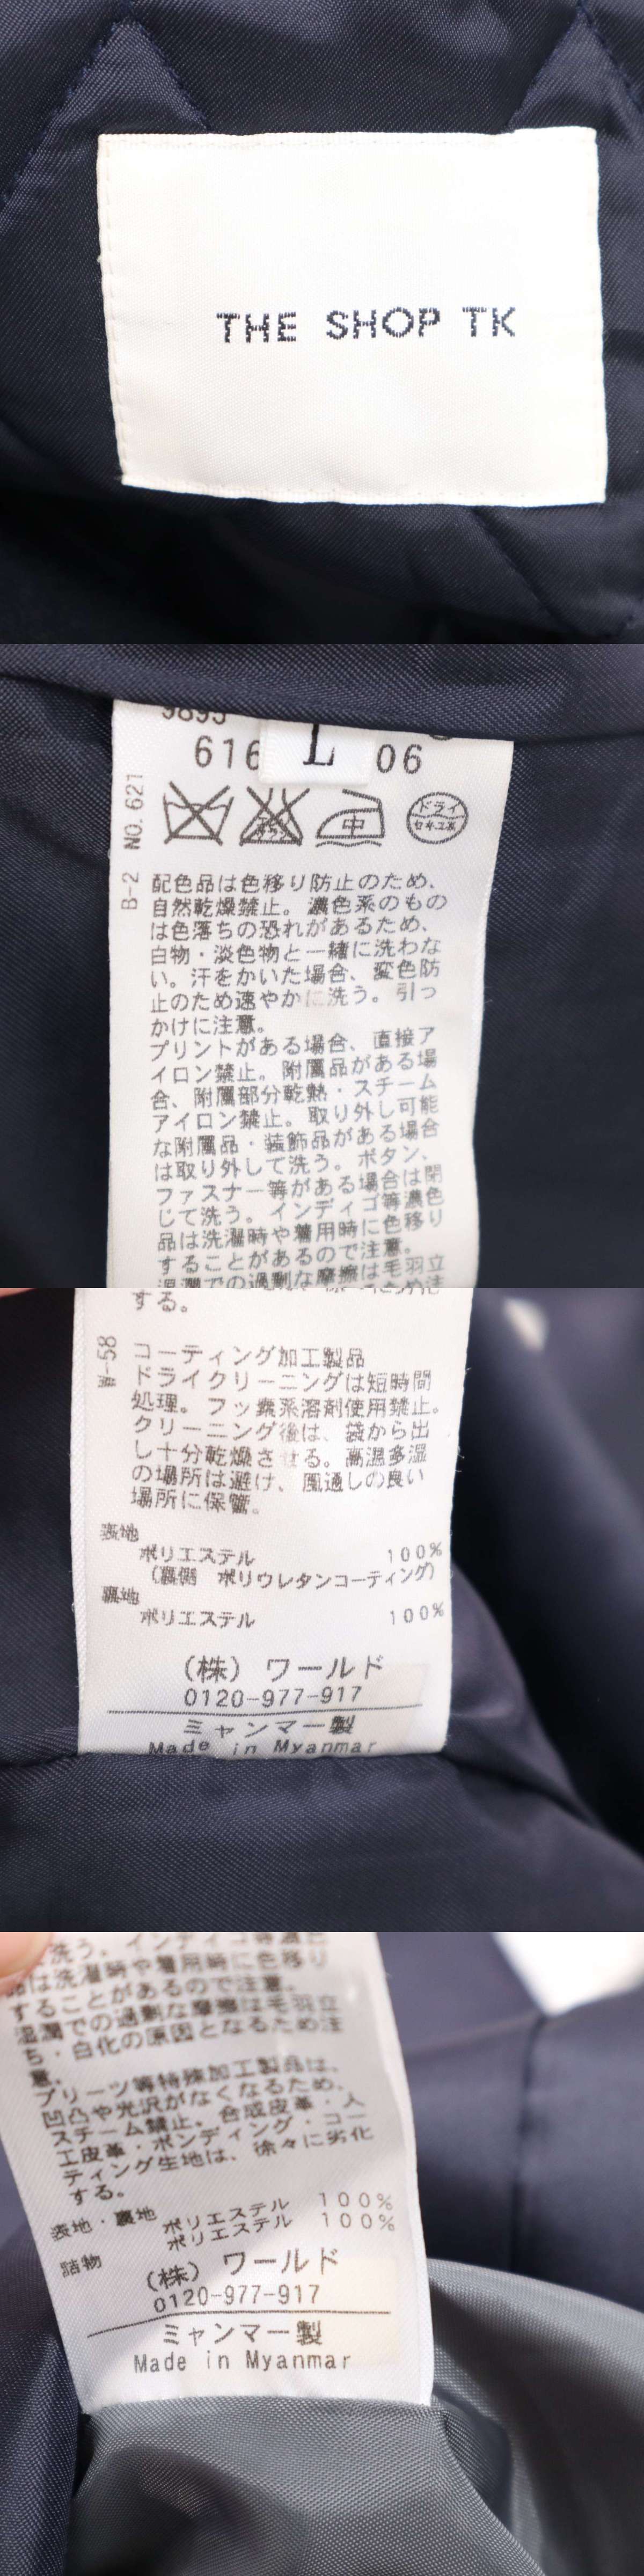 THE SHOP TK
9895
616
L
06
B-2 NO.621
中
ドライ
セキユ系
配色品は色移り防止のため、
自然乾燥禁止。濃色系のもの
は色落ちの恐れがあるため、
白物・淡色物と一緒に洗わな
い。汗をかいた場合、変色防
止のため速やかに洗う。引っ
かけに注意。
プリントがある場合、直接ア
イロン禁止。附属品がある場
合、附属部分乾熱・スチーム
アイロン禁止。取り外し可能
な附属品・装飾品がある場合
は取り外して洗う。ボタン、
ファスナー等がある場合は閉
じて洗う。インディゴ等濃色
品は洗濯時や着用時に色移り
することがあるので注意。
湿潤での過剰な摩擦は毛羽立
する。
W-58
コーティング加工製品
ドライクリーニングは短時間
処理。フッ素系溶剤使用禁止。
クリーニング後は、袋から出
し十分乾燥させる。高温多湿
の場所は避け、風通しの良い
場所に保管。
表地
ポリエステル 100%
(裏側 ポリウレタンコーティング)
裏地
ポリエステル 100%
(株) ワールド
0120-977-917
ミャンマー製
Made in Myanmar
洗う。インディゴ等濃色
品は洗濯時や着用時に色移り
することがあるので注意。
湿潤での過剰な摩擦は毛羽立
ち・白化の原因となるため注
意。
プリーツ等特殊加工製品は、
凹凸や光沢がなくなるため、
スチーム禁止。合成皮革・人
工皮革・ボンディング・コー
ティング生地は、徐々に劣化
する。
表地・裏地
ポリエステル 100%
ポリエステル 100%
詰物
(株) ワールド
0120-977-917
ミャンマー製
Made in Myanmar